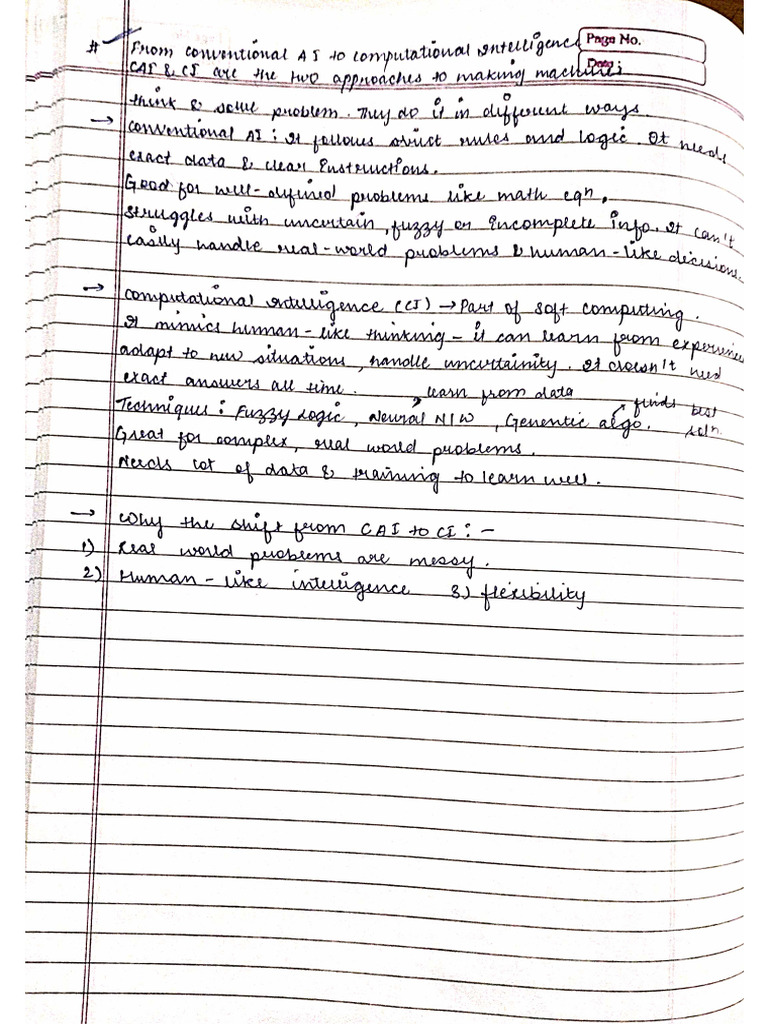 Page No.
Date
# From conventional AI to computational Intelligence
CAI & CI are the two approaches to making machines
think & solve problem. They do it in different ways.
→ conventional AI : It follows strict rules and logic. It needs
exact data & clear Instructions.
Good for well-defined problems like math eqn.
Struggles with uncertain, fuzzy or Incomplete info. It can't
easily handle real-world problems & human-like decisions.
→ computational Intelligence (CI) → Part of soft computing.
It mimics human-like thinking - it can learn from experience
adapt to new situations, handle uncertainity. It doesn't need
exact answers all time. learn from data finds best
Techniques : Fuzzy Logic, Neural N/W, Genentic algo. soln.
Great for complex, real world problems.
Needs lot of data & training to learn well.
→ Why the shift from CAI to CI : -
1) Real world problems are messy.
2) Human-like intelligence 3) flexibility